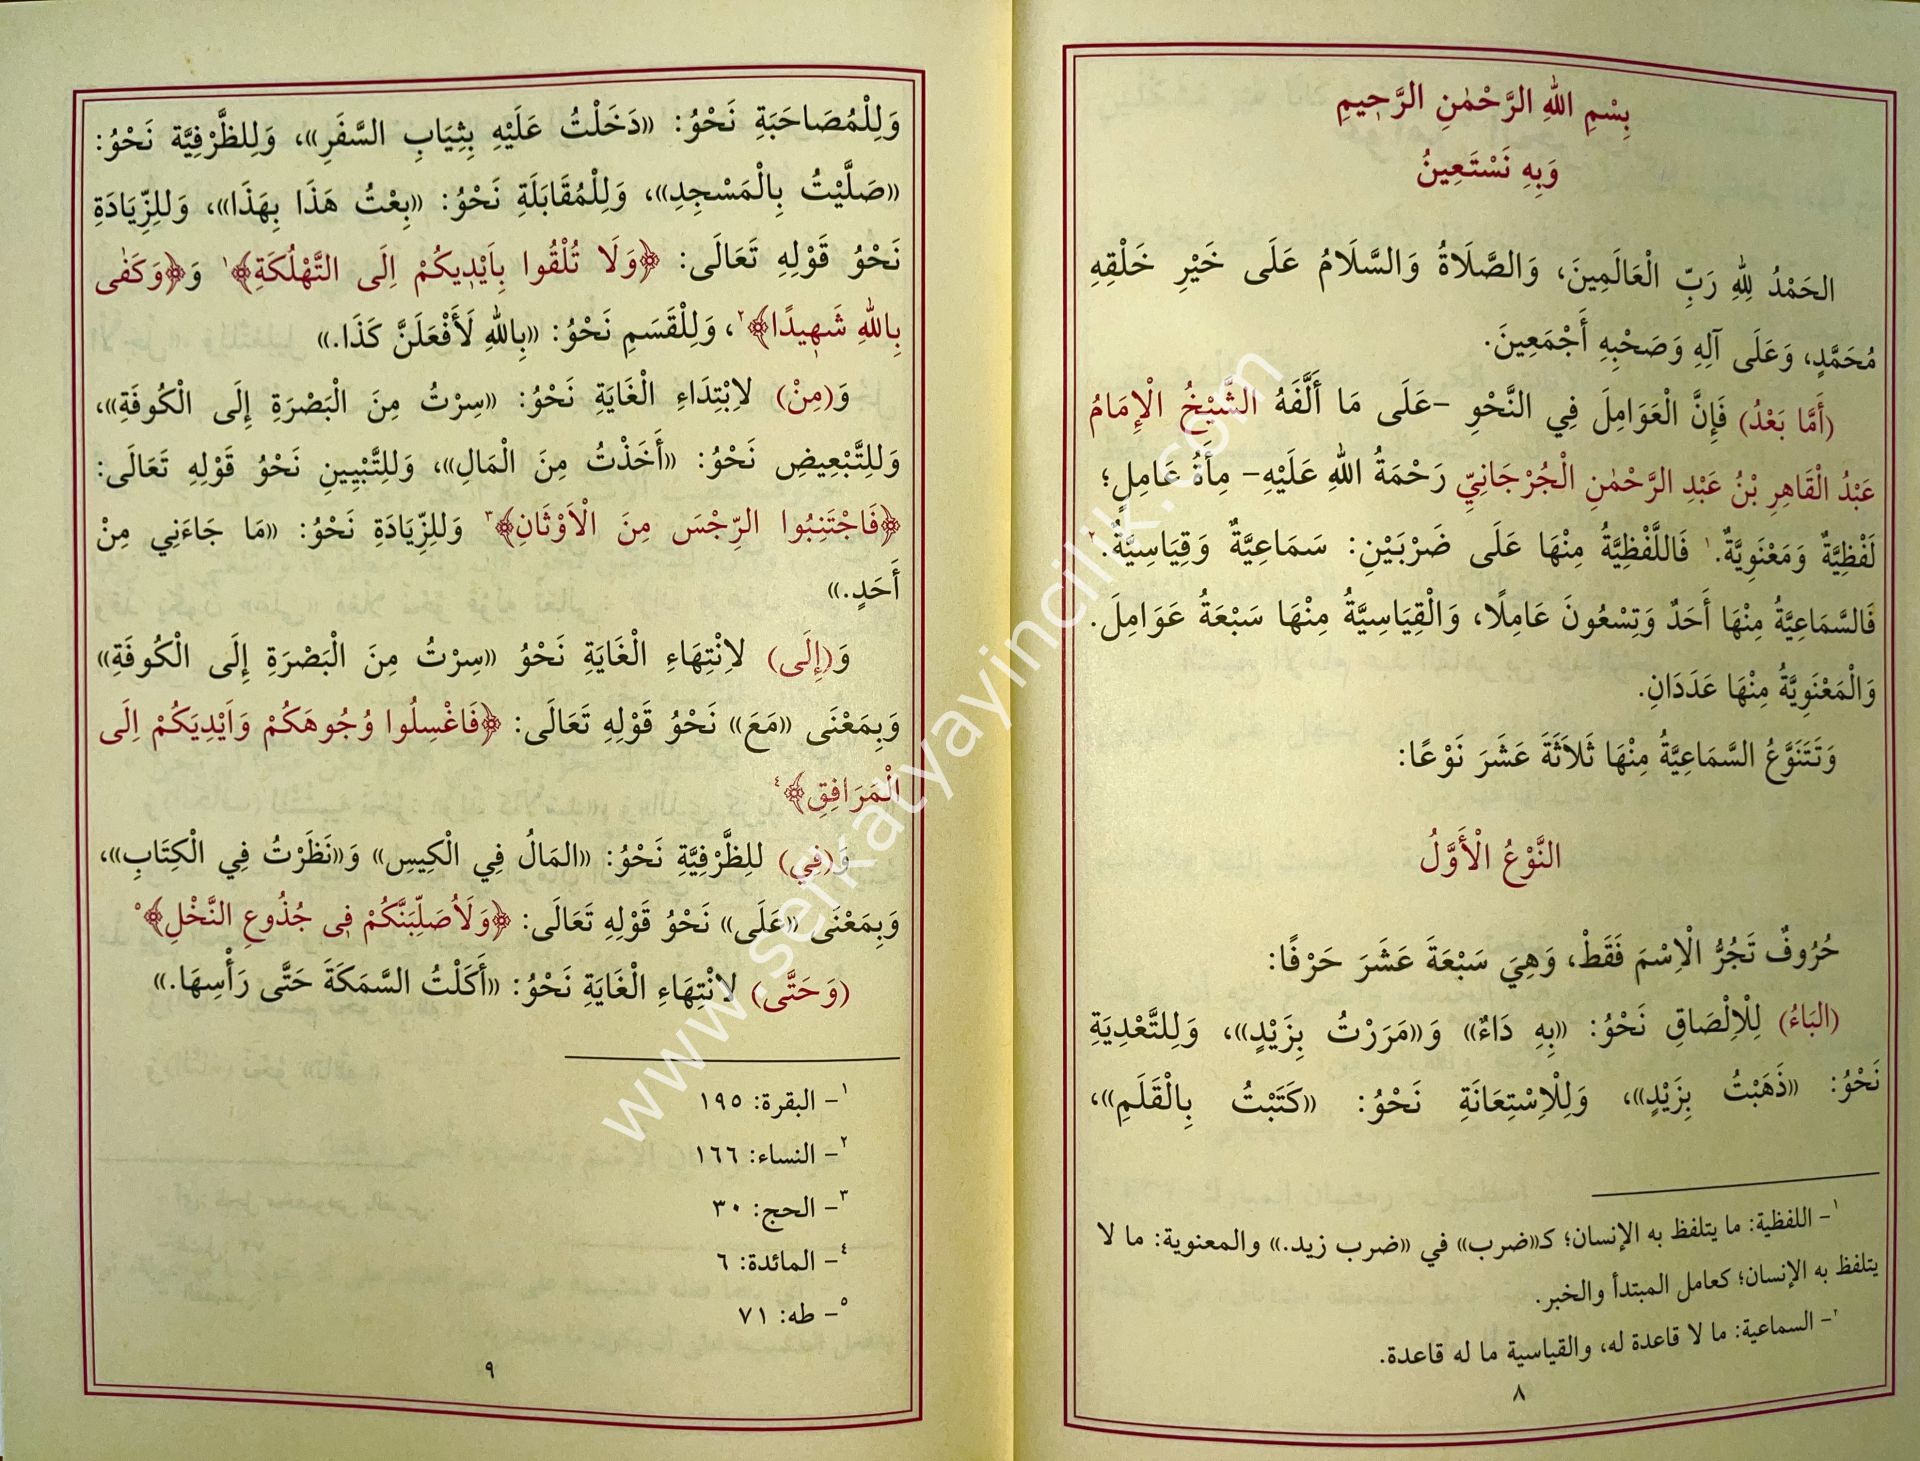 بِسْمِ اللهِ الرَّحْمٰنِ الرَّحِيمِ
وَبِهِ نَسْتَعِينُ
الحَمْدُ لِلهِ رَبِّ الْعَالَمِينَ، وَالصَّلَاةُ وَالسَّلَامُ عَلَى خَيْرِ خَلْقِهِ
مُحَمَّدٍ، وَعَلَى آلِهِ وَصَحْبِهِ أَجْمَعِينَ.
(أَمَّا بَعْدُ) فَإِنَّ الْعَوَامِلَ فِي النَّحْوِ -عَلَى مَا أَلَّفَهُ الشَّيْخُ الْإِمَامُ
عَبْدُ الْقَاهِرِ بْنُ عَبْدِ الرَّحْمٰنِ الْجُرْجَانِيِّ رَحْمَةُ اللهِ عَلَيْهِ- مِأَةُ عَامِلٍ؛
لَفْظِيَّةٌ وَمَعْنَوِيَّةٌ.١ فَاللَّفْظِيَّةُ مِنْهَا عَلَى ضَرْبَيْنِ: سَمَاعِيَّةٌ وَقِيَاسِيَّةٌ.٢
فَالسَّمَاعِيَّةُ مِنْهَا أَحَدٌ وَتِسْعُونَ عَامِلًا، وَالْقِيَاسِيَّةُ مِنْهَا سَبْعَةُ عَوَامِلَ.
وَالْمَعْنَوِيَّةُ مِنْهَا عَدَدَانِ.
وَتَتَنَوَّعُ السَّمَاعِيَّةُ مِنْهَا ثَلَاثَةَ عَشَرَ نَوْعًا:
النَّوْعُ الْأَوَّلُ
حُرُوفٌ تَجُرُّ الْاِسْمَ فَقَطْ، وَهِيَ سَبْعَةَ عَشَرَ حَرْفًا:
(البَاءُ) لِلْاِلْصَاقِ نَحْوُ: «بِهِ دَاءٌ» وَ«مَرَرْتُ بِزَيْدٍ»، وَلِلتَّعْدِيَةِ
نَحْوُ: «ذَهَبْتُ بِزَيْدٍ»، وَلِلْاِسْتِعَانَةِ نَحْوُ: «كَتَبْتُ بِالْقَلَمِ»،
١- اللفظية: ما يتلفظ به الإنسان؛ كـ«ضرب» في «ضرب زيد.» والمعنوية: ما لا
يتلفظ به الإنسان؛ كعامل المبتدأ والخبر.
٢- السماعية: ما لا قاعدة له، والقياسية ما له قاعدة.
٨
وَلِلْمُصَاحَبَةِ نَحْوُ: «دَخَلْتُ عَلَيْهِ بِثِيَابِ السَّفَرِ»، وَلِلظَّرْفِيَّة نَحْوُ:
«صَلَّيْتُ بِالْمَسْجِدِ»، وَلِلْمُقَابَلَةِ نَحْوُ: «بِعْتُ هَذَا بِهَذَا»، وَلِلزِّيَادَةِ
نَحْوُ قَوْلِهِ تَعَالَى: ﴿وَلَا تُلْقُوا بِاَيْدِيكُمْ اِلَى التَّهْلُكَةِ﴾١ وَ﴿وَكَفٰى
بِاللهِ شَهِيدًا﴾٢، وَلِلْقَسَمِ نَحْوُ: «بِاللهِ لَأَفْعَلَنَّ كَذَا.»
وَ(مِنْ) لاِبْتِدَاءِ الْغَايَةِ نَحْوُ: «سِرْتُ مِنَ الْبَصْرَةِ إِلَى الْكُوفَةِ»،
وَلِلتَّبْعِيضِ نَحْوُ: «أَخَذْتُ مِنَ الْمَالِ»، وَلِلتَّبْيِينِ نَحْوُ قَوْلِهِ تَعَالَى:
﴿فَاجْتَنِبُوا الرِّجْسَ مِنَ الْاَوْثَانِ﴾٣ وَلِلزِّيَادَةِ نَحْوُ: «مَا جَاءَنِي مِنْ
أَحَدٍ.»
وَ(إِلَى) لاِنْتِهَاءِ الْغَايَةِ نَحْوُ «سِرْتُ مِنَ الْبَصْرَةِ إِلَى الْكُوفَةِ»
وَبِمَعْنَى «مَعَ» نَحْوُ قَوْلِهِ تَعَالَى: ﴿فَاغْسِلُوا وُجُوهَكُمْ وَاَيْدِيَكُمْ اِلَى
الْمَرَافِقِ﴾٤
وَ(فِي) لِلظَّرْفِيَّةِ نَحْوُ: «المَالُ فِي الْكِيسِ» وَ«نَظَرْتُ فِي الْكِتَابِ»،
وَبِمَعْنَى «عَلَى» نَحْوُ قَوْلِهِ تَعَالَى: ﴿وَلَاُصَلِّبَنَّكُمْ فِي جُذُوعِ النَّخْلِ﴾٥
(وَحَتَّى) لاِنْتِهَاءِ الْغَايَةِ نَحْوُ: «أَكَلْتُ السَّمَكَةَ حَتَّى رَأْسِهَا.»
١- البقرة: ١٩٥
٢- النساء: ١٦٦
٣- الحج: ٣٠
٤- المائدة: ٦
٥- طه: ٧١
٩
www.sefkatyayincilik.com